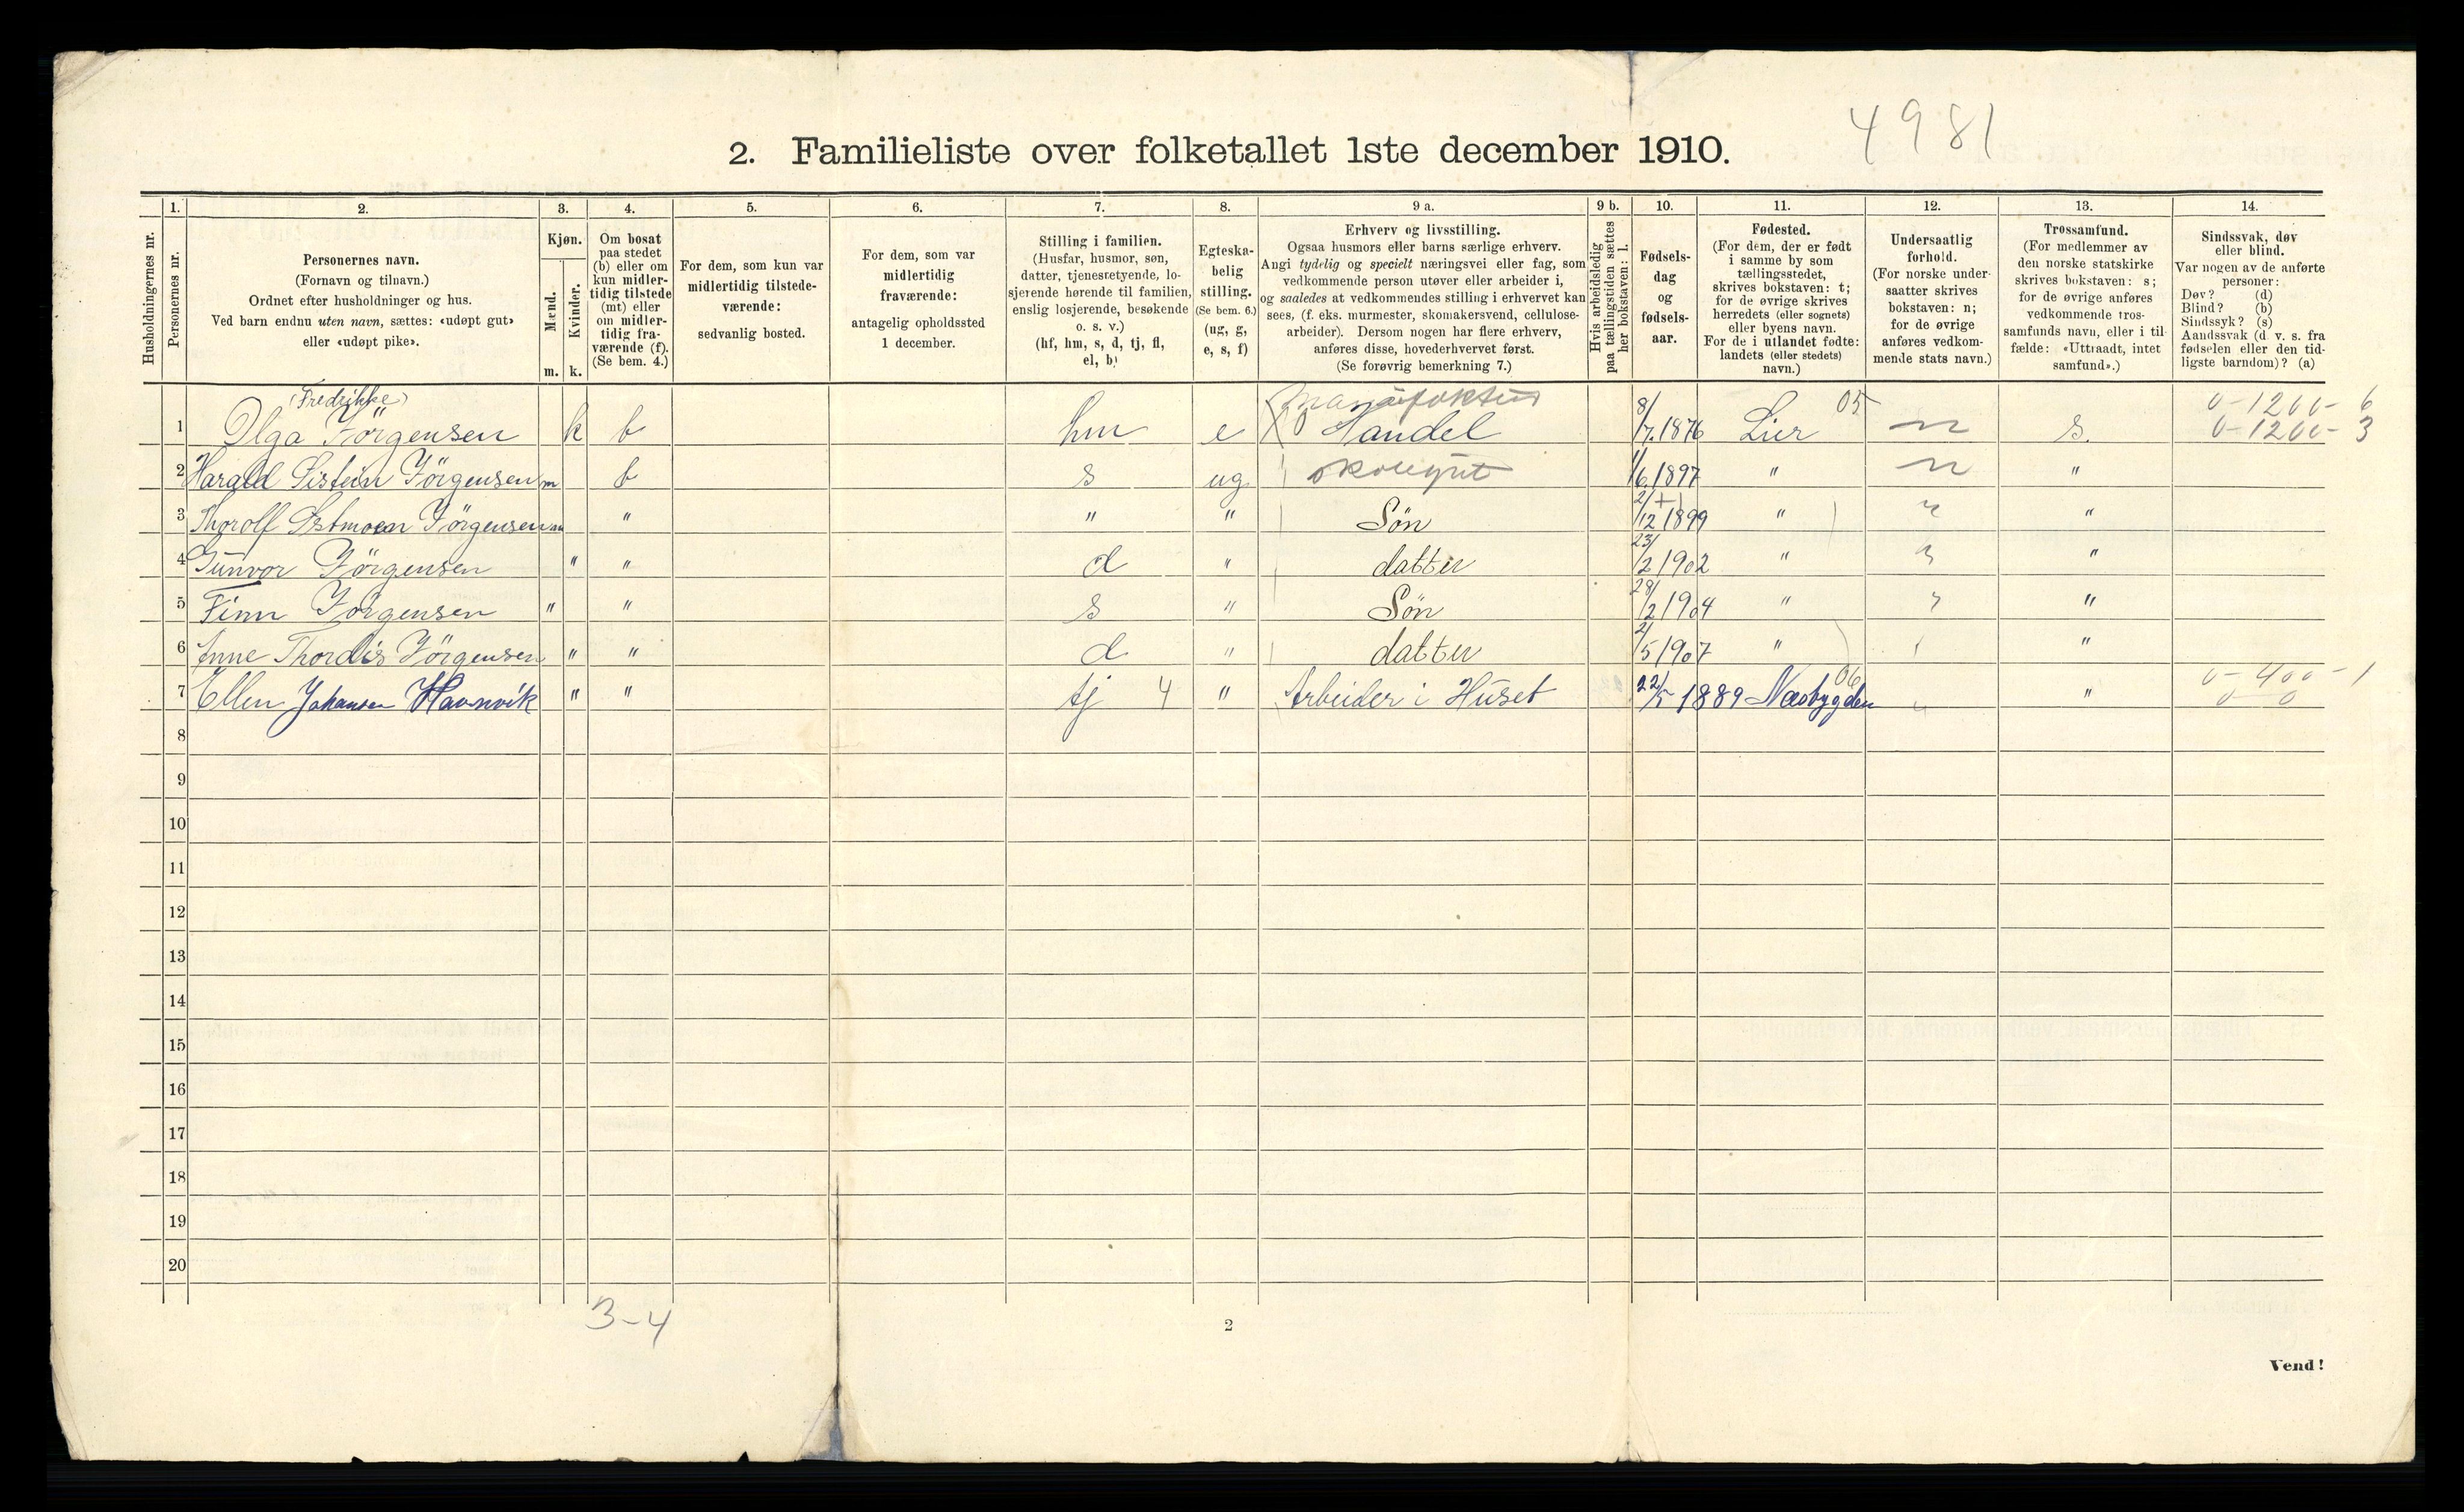 4981
2. Familieliste over folketallet 1ste december 1910.
Husholdningernes nr.
1. Personernes nr.
2. Personernes navn.
(Fornavn og tilnavn.)
Ordnet efter husholdninger og hus.
Ved barn endnu uten navn, sættes: «udøpt gut»
eller «udøpt pike».
3. Kjøn.
Mænd. m.
Kvinder. k.
4. Om bosat
paa stedet
(b) eller om
kun midler-
tidig tilstede
(mt) eller
om midler-
tidig fra-
værende (f).
(Se bem. 4.)
5. For dem, som kun var
midlertidig tilstede-
værende:
sedvanlig bosted.
6. For dem, som var
midlertidig
fraværende:
antagelig opholdssted
1 december.
7. Stilling i familien.
(Husfar, husmor, søn,
datter, tjenestetyende, lo-
sjerende hørende til familien,
enslig losjerende, besøkende
o. s. v.)
(hf, hm, s, d, tj, fl,
el, b)
8. Egteska-
belig
stilling.
(Se bem. 6.)
(ug, g,
e, s, f)
9 a. Erhverv og livsstilling.
Ogsaa husmors eller barns særlige erhverv.
Angi tydelig og specielt næringsvei eller fag, som
vedkommende person utøver eller arbeider i,
og saaledes at vedkommendes stilling i erhvervet kan
sees, (f. eks. murmester, skomakersvend, cellulose-
arbeider). Dersom nogen har flere erhverv,
anføres disse, hovederhvervet først.
(Se forøvrig bemerkning 7.)
9 b. Hvis arbeidsledig
paa tællingstiden sættes
her bokstaven: l.
10. Fødsels-
dag
og
fødsels-
aar.
11. Fødested.
(For dem, der er født
i samme by som
tællingsstedet,
skrives bokstaven: t;
for de øvrige skrives
herredets (eller sognets)
eller byens navn.
For de i utlandet fødte:
landets (eller stedets)
navn.)
12. Undersaatlig
forhold.
(For norske under-
saatter skrives
bokstaven: n;
for de øvrige
anføres vedkom-
mende stats navn.)
13. Trossamfund.
(For medlemmer av
den norske statskirke
skrives bokstaven: s;
for de øvrige anføres
vedkommende tros-
samfunds navn, eller i til-
fælde: «Uttraadt, intet
samfund».)
14. Sindssvak, døv
eller blind.
Var nogen av de anførte
personer:
Døv? (d)
Blind? (b)
Sindssyk? (s)
Aandssvak (d. v. s. fra
fødselen eller den tid-
ligste barndom)? (a)
(Fredrikke) Manufaktur 05 0-1200-6
1 Olga Jörgensen k b hm e Handel 8/7.1876 Lier n s. 0-1200-3
2 Harald Sistein Jörgensen m b s ug skolegut 1/6.1897 " n "
3 Thorolf Østmoen Jörgensen m " " " Søn 2/12 1899 " n "
4 Gunvor Jörgensen " " d " datter 23/2 1902 " "
5 Finn Jörgensen " " s " Søn 28/2 1904 " "
6 Anne Thordis Jörgensen " " d " datter 2/5 1907 " "
06 0-400-1
7 Ellen Johansen Havnvik " " tj 4 " Arbeider i Huset 22/5 1889 Næsbygden " " 0 0
8
9
10
11
12
13
14
15
16
17
18
19
20
3-4
2
Vend!